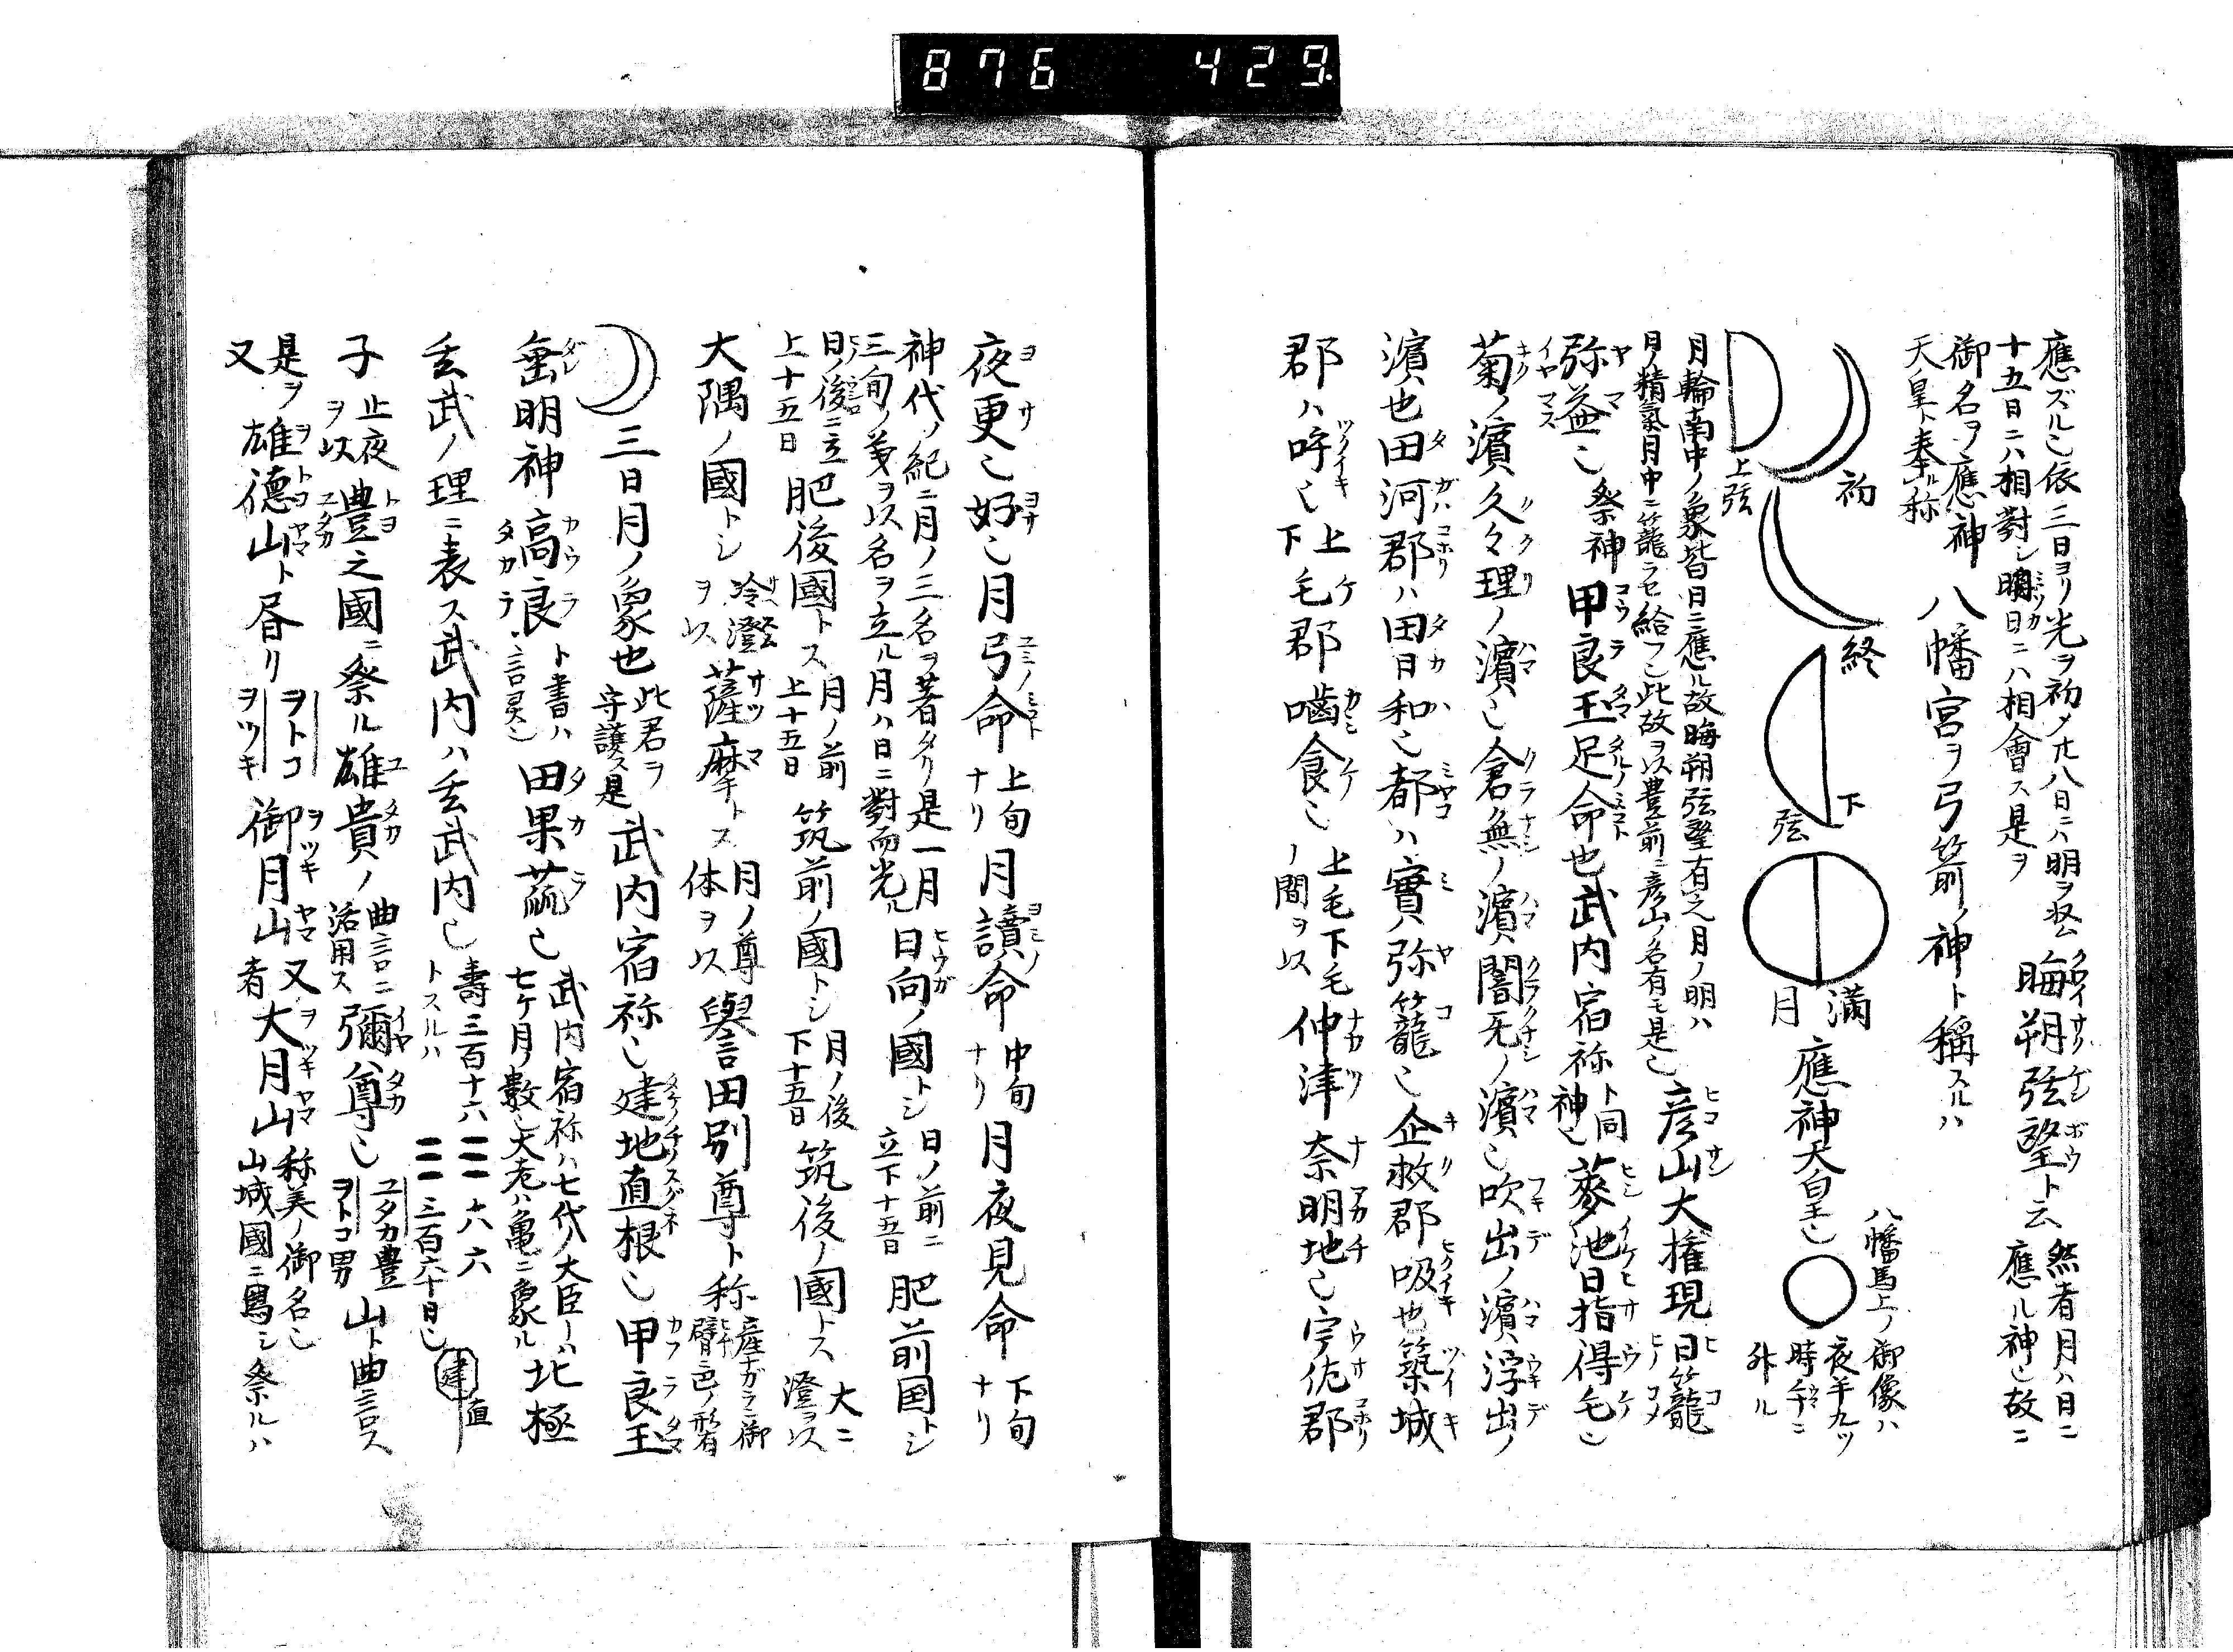 876 429
應ズルヿ依三日ヨリ光ヲ初メ廿八日ニハ明ヲ収ム
十五日ニハ相對シ明日ニハ相會ス是ヲ
晦朔弦望ト云
然者月ハ日ニ
應ル神也故ニ
御名ヲ應神
天皇ト奉ル称
八幡宮ヲ弓箭ノ神ト稱スルハ
初
上弦
終
下弦
満月
應神天皇也
八幡馬上ノ御像ハ
夜半九ツ
時午ニ
外ル
月輪南中ノ象皆日ニ應ル故晦朔弦望有之月ノ明ハ
日ノ精氣月中ニ籠ラセ給フ也此故ヲ以豊前ニ彦山ノ名有モ是也
彦山大権現日籠
弥益也祭神甲良玉足命也武内宿祢ト同神也蔆池日指得毛也
菊ノ濱久々理ノ濱也倉無ノ濱ハ闇无ノ濱也吹出ノ濱ハ浮出ノ
濱也田河郡ハ田日和也都ハ實弥籠也企救郡吸也築城
郡ハ呼也上下毛郡噛食也上毛下毛ノ間ヲ以仲津奈明地也宇佐郡
夜更也好也月弓命上旬ナリ月讀命中旬ナリ月夜見命下旬ナリ
神代ノ紀ニ月ノ三名ヲ著タリ是一月
三旬ノ義ヲ以名ヲ立ル月ハ日ニ對而光ル
日向ノ國トシ日ノ前ニ立下十五日肥前国トシ
日ノ後ニ立上十五日肥後國トス月ノ前上十五日筑前ノ國トシ月ノ後下十五日筑後ノ國トス大ニ澄ヲ以
大隅ノ國トシ冷澄ヲ以薩摩トス月ノ尊体ヲ以譽田別尊ト称産ナガラニ御臂ニ巴ノ形有
三日月ノ象也此君ヲ守護ス是武内宿祢也建地直根也甲良玉
垂明神高良ト書ハ言灵也田果蓏也武内宿祢ハ七代ノ大臣ト一ハ七ケ月ノ數也大老ハ亀ニ象ル北極
玄武ノ理ニ表ス武内ハ玄武内也壽三百十六トスルハ三百六十日也
建直
子止夜ヲ以豊之國ニ祭ル雄貴ノ曲言ニ活用ス彌尊也ユタカ豊ヲトコ男山ト曲言ス
是ヲ又雄徳山ト昏リヲトコヲツキ御月山又者大月山称美ノ御名也山城國ニ寫シ祭ルハ